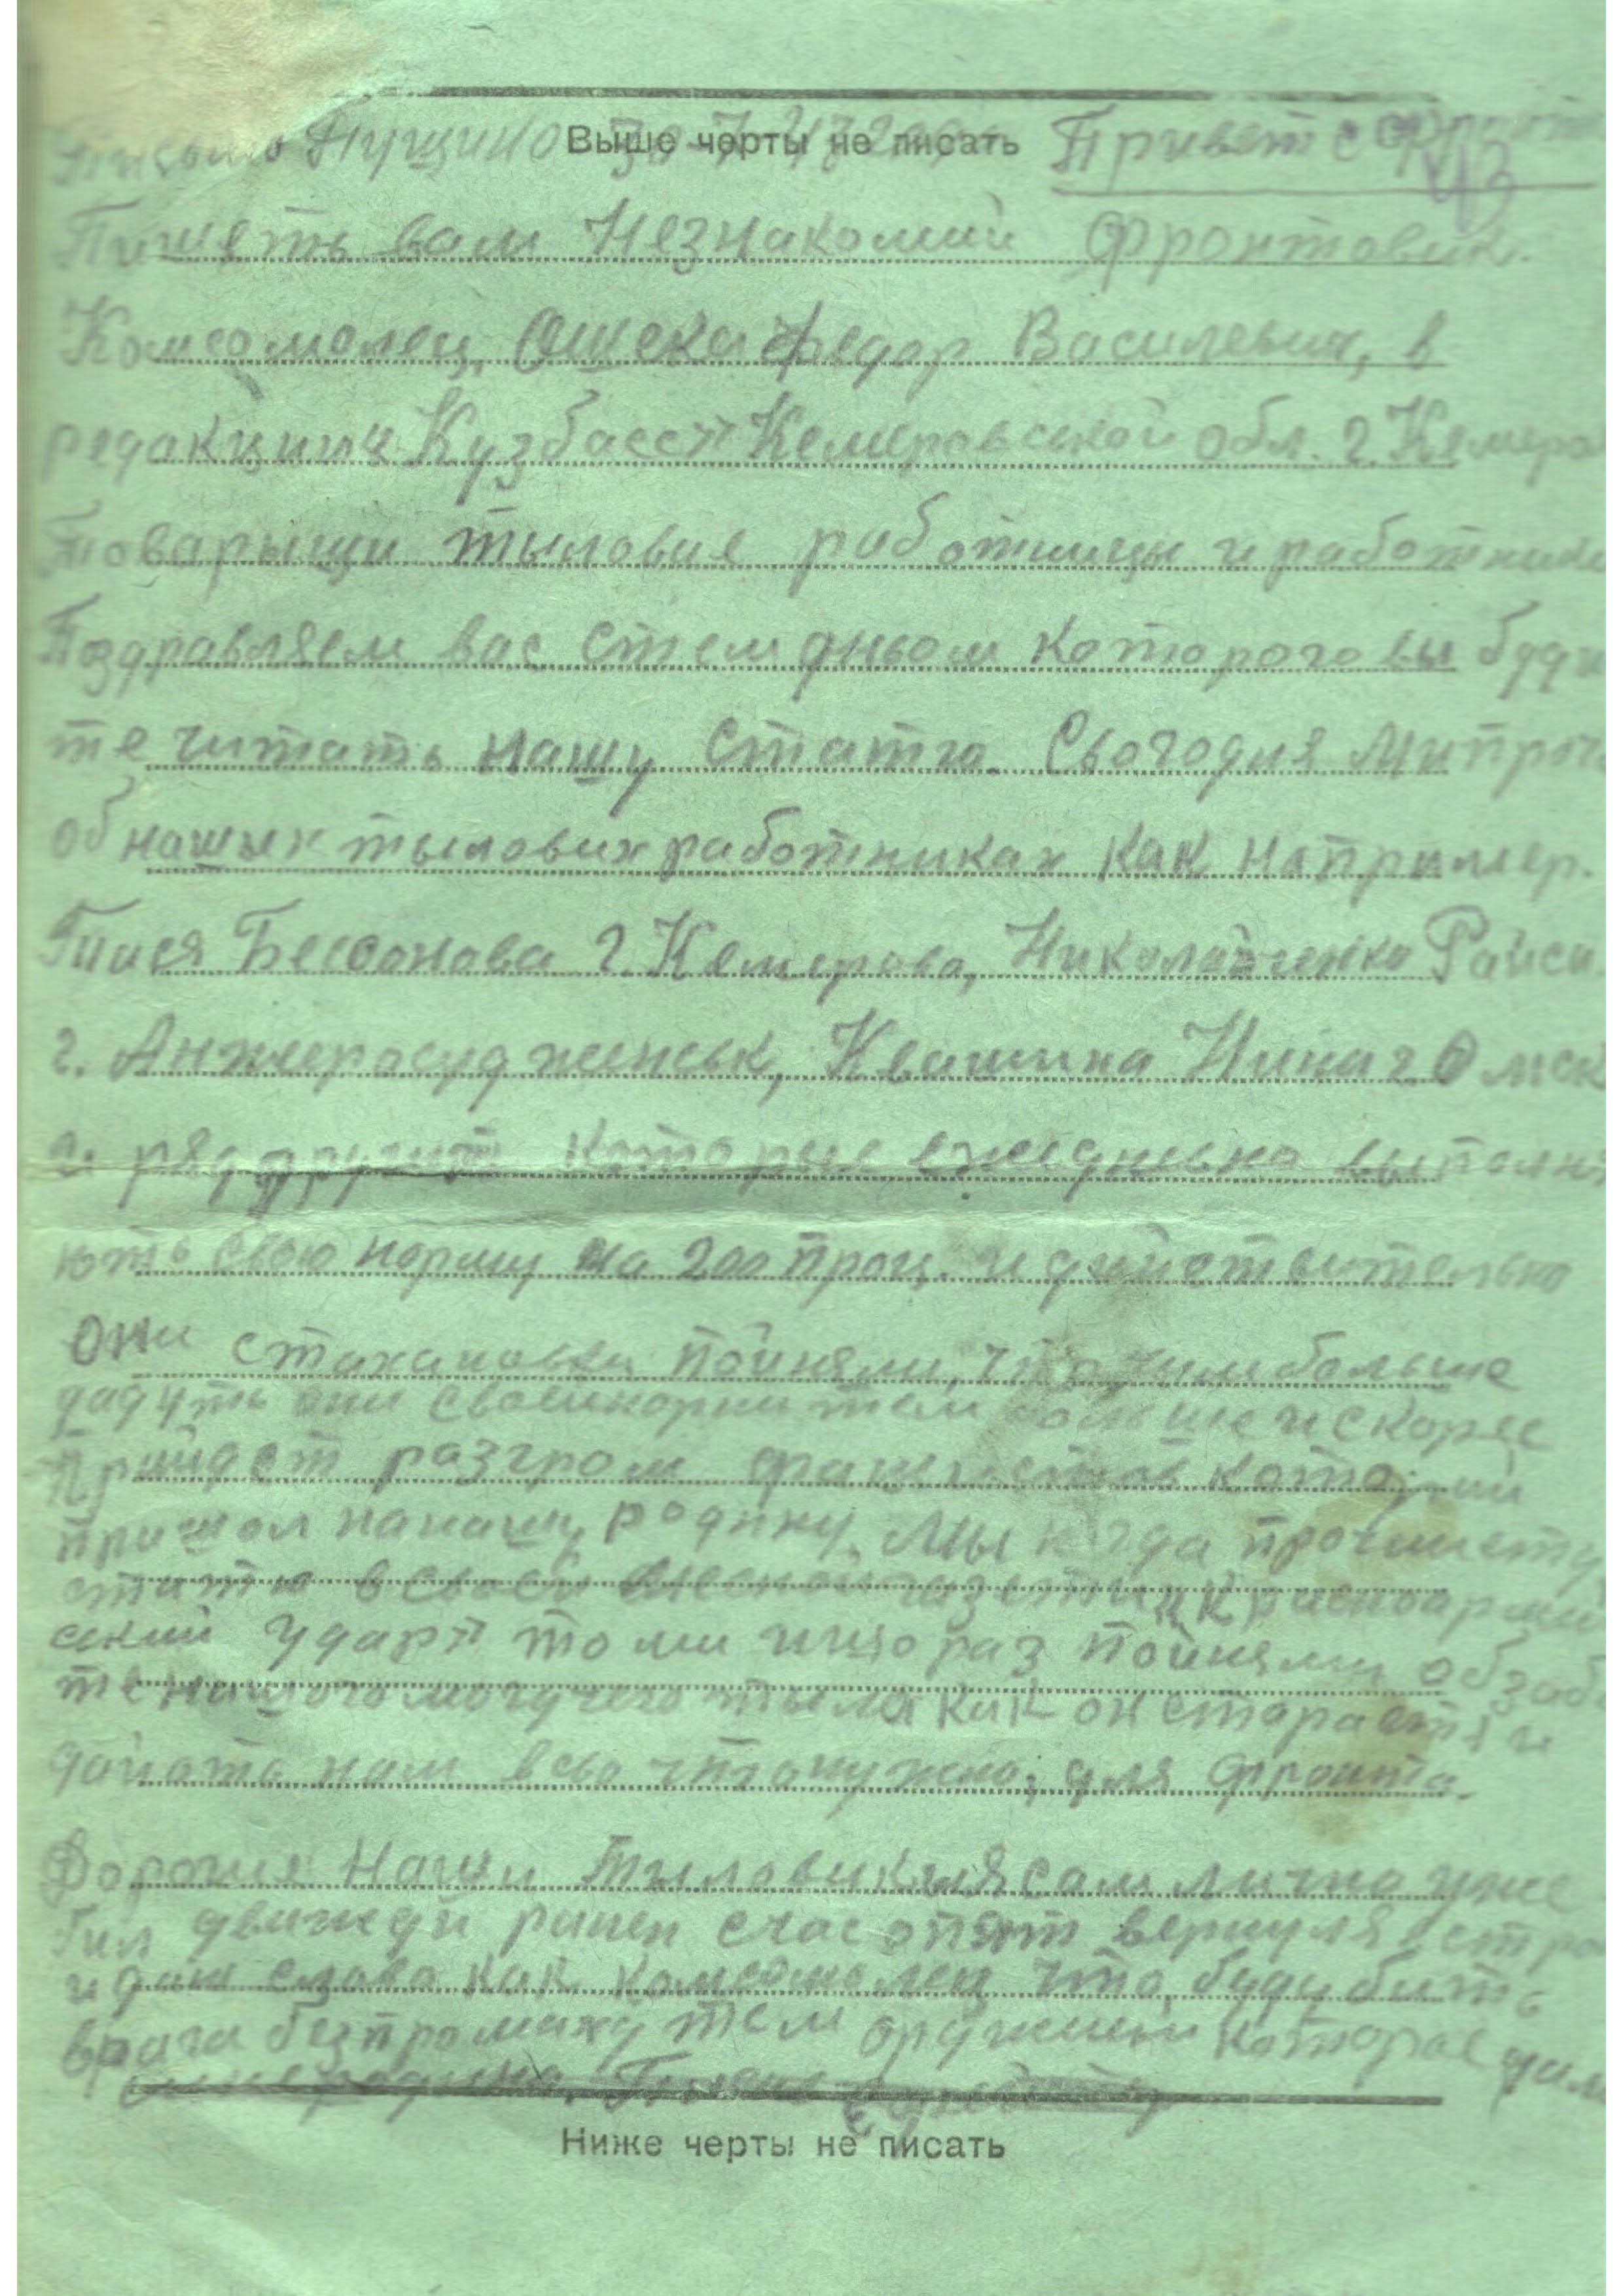 Выше черты не писать
Письмо Пущино Привет с фронта
43
Пишеть вам Незнакомий Фронтовик.
Комсомолец, Федор Василевич, в
редакцию "Кузбасс" Кемеровской обл. г. Кемеро
Товарыщи тыловие работницы и работники
Поздравляем вас стем дньом которого ви буди
те читать нашу статю. Сьогодня Ми проч
об нашых тылових работниках как например.
Тася Бессонова г. Кемерово, Николайченко Раиса
г. Анжеросудженськ, Квашина Нина г. Омск
и ряд других которые ежедневно выполня
ють свою норму на 200 проц. и дийствительно
они стахановци пойняли, что чим больше
дадуть они своеи норми тем больше и скорее
прийдет разгром фашистов который
пришол на нашу родину. Мы когда прочли ету
статю в своей газети "Красноармей
ский Удар" то ми ищо раз пойняли об забо
те нашого могучего тыла как он стараетья и
дайоть нам всьо что нужно, для фронта.
Дорогия Наши Тыловики я сам лично уже
бил движди ранен счас опять вернуля в стро
и даю слово как комсомолец что, буду бить
врага безпромаху тем оружием которое дала
мне родина.
Ниже черты не писать